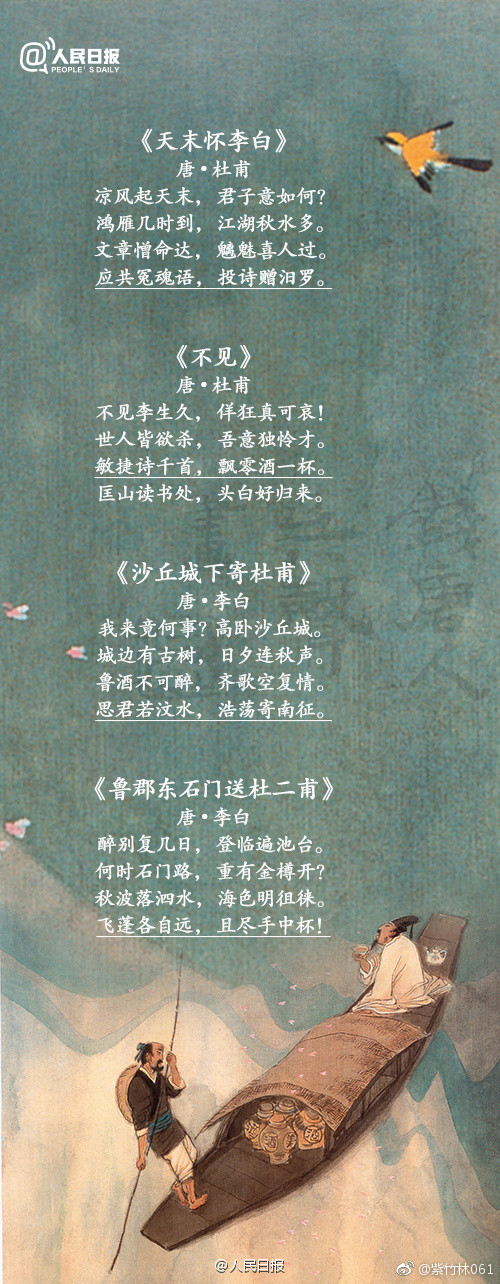 @人民日报
PEOPLE'S DAILY
《天末怀李白》
唐·杜甫
凉风起天末，君子意如何？
鸿雁几时到，江湖秋水多。
文章憎命达，魑魅喜人过。
应共冤魂语，投诗赠汨罗。
《不见》
唐·杜甫
不见李生久，佯狂真可哀！
世人皆欲杀，吾意独怜才。
敏捷诗千首，飘零酒一杯。
匡山读书处，头白好归来。
《沙丘城下寄杜甫》
唐·李白
我来竟何事？高卧沙丘城。
城边有古树，日夕连秋声。
鲁酒不可醉，齐歌空复情。
思君若汶水，浩荡寄南征。
《鲁郡东石门送杜二甫》
唐·李白
醉别复几日，登临遍池台。
何时石门路，重有金樽开？
秋波落泗水，海色明徂徕。
飞蓬各自远，且尽手中杯！
酒
酒
@人民日报
@紫竹林061